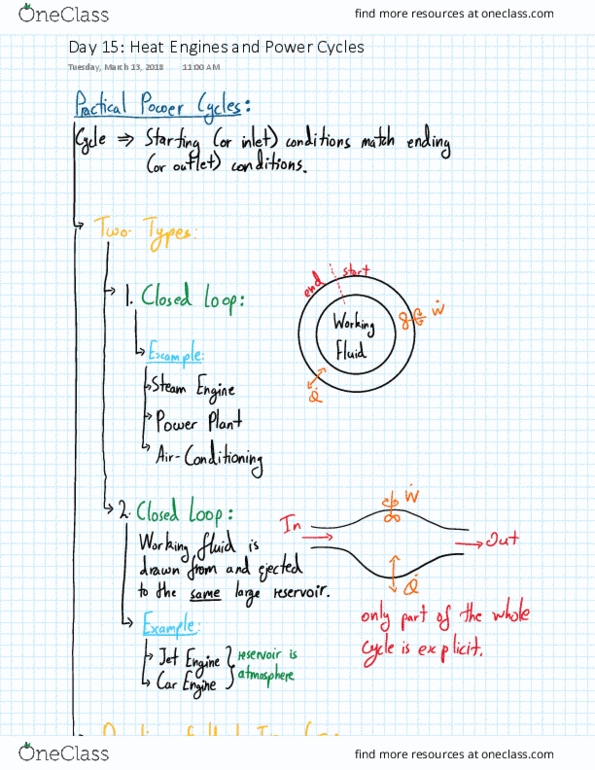 OneClass
find more resources at oneclass.com
Day 15: Heat Engines and Power Cycles
Tuesday, March 13, 2018 11:00 AM
Practical Power Cycles:
Cycle ⇒ Starting (or inlet) conditions match ending
(or outlet) conditions.
Two Types:
1. Closed Loop:
Example:
Steam Engine
Power Plant
Air-Conditioning
end
start
Working
Fluid
Ẇ
Q̇
2. Closed Loop:
Working fluid is
drawn from and ejected
to the same large reservoir.
Example:
Jet Engine
Car Engine
reservoir is
atmosphere
In
Ẇ
Out
Q̇
only part of the whole
cycle is explicit.
OneClass
find more resources at oneclass.com